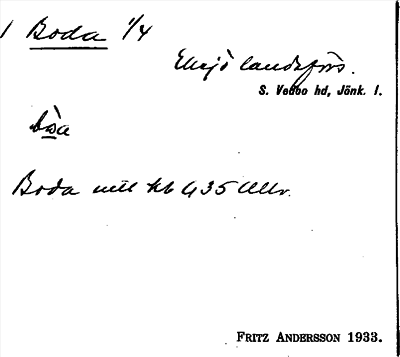 1 Boda 1/4
Ekesjö landsförs.
S. Vedbo hd, Jönk. l.
båsa
Boda mtl kb 435 Allr.
FRITZ ANDERSSON 1933.